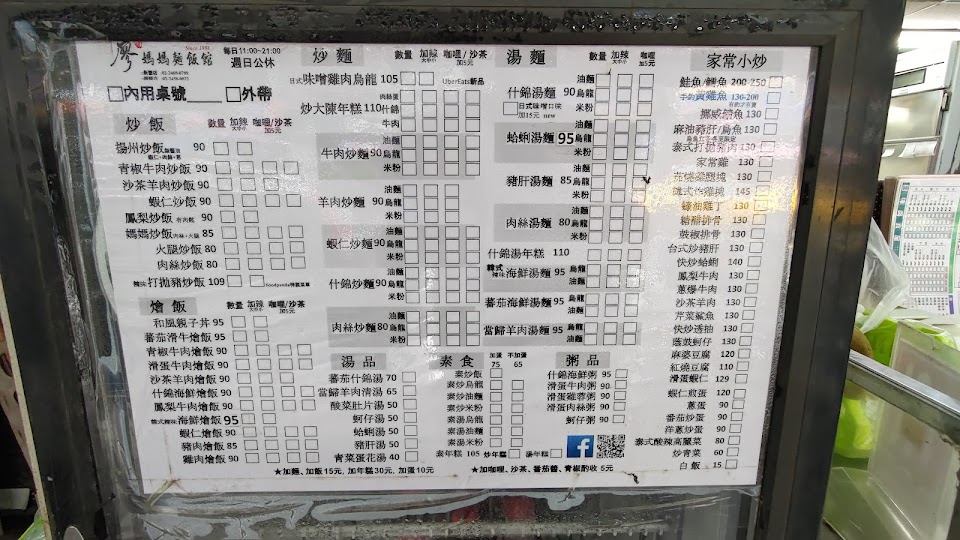 廖媽媽麵飯館
Since 1981
每日11:00~21:00
週日公休
內用桌號____ 外帶
炒飯 數量 加辣 大中小 咖哩/沙茶 加5元
揚州炒飯 90
青椒牛肉炒飯 90
沙茶羊肉炒飯 90
蝦仁炒飯 90
鳳梨炒飯 有肉鬆 90
媽媽炒飯 肉絲+火腿 85
火腿炒飯 80
肉絲炒飯 80
辣味打拋豬炒飯 109
燴飯 數量 加辣 大中小 咖哩/沙茶 加5元
和風親子丼 95
蕃茄滑牛燴飯 95
青椒牛肉燴飯 90
滑蛋牛肉燴飯 90
沙茶羊肉燴飯 90
什錦海鮮燴飯 90
鳳梨牛肉燴飯 90
韓式辣味海鮮燴飯 95
蝦仁燴飯 90
豬肉燴飯 85
雞肉燴飯 90
炒麵 數量 加辣 大中小 咖哩/沙茶 加5元
日式味噌雞肉烏龍 105 UberEats新品
炒大陳年糕 110 肉絲蛋 什錦 牛肉
牛肉炒麵 90 油麵 烏龍 米粉
羊肉炒麵 90 油麵 烏龍 米粉
蝦仁炒麵 90 油麵 烏龍 米粉
什錦炒麵 90 油麵 烏龍 米粉
肉絲炒麵 80 油麵 烏龍 米粉
湯品
蕃茄什錦湯 70
當歸羊肉清湯 65
酸菜肚片湯 50
蚵仔湯 50
蛤蜊湯 50
豬肝湯 50
青菜蛋花湯 40
湯麵 數量 加辣 大中小 咖哩 加5元
什錦湯麵 90 油麵 烏龍 米粉
日式味噌口味 加15元 new
蛤蜊湯麵 95 油麵 烏龍 米粉
豬肝湯麵 85 油麵 烏龍 米粉
肉絲湯麵 80 油麵 烏龍 米粉
什錦湯年糕 110
韓式辣味海鮮湯麵 95 油麵 烏龍 米粉
蕃茄海鮮湯麵 95 烏龍 米粉
當歸羊肉湯麵 95 油麵 烏龍 米粉
素食 加蛋 75 不加蛋 65
素炒飯
素炒烏龍
素炒油麵
素炒米粉
素湯烏龍
素湯油麵
素湯米粉
素年糕 105 炒年糕 湯年糕
粥品
什錦海鮮粥 95
滑蛋牛肉粥 90
滑蛋雞蓉粥 90
滑蛋肉絲粥 90
蚵仔粥 90
家常小炒
鮭魚/鱈魚 200 250
130-200
挪威鯖魚 130
麻油豬肝/烏魚 130
泰式打拋豬肉 130
家常雞 130
130
韓式炸雞塊 145
蠔油雞丁 130
糖醋排骨 130
豉椒排骨 130
台式炒豬肝 130
快炒蛤蜊 140
鳳梨牛肉 130
蔥爆牛肉 130
沙茶羊肉 130
芹菜鯊魚 130
快炒透抽 130
蔭豉蚵仔 130
麻婆豆腐 120
紅燒豆腐 110
滑蛋蝦仁 129
蝦仁煎蛋 120
蔥蛋 90
蕃茄炒蛋 90
洋蔥炒蛋 90
泰式酸辣高麗菜 80
炒青菜 60
白飯 15
★加麵、加飯15元, 加年糕30元, 加蛋10元
★加咖哩、沙茶、蕃茄醬、青椒酌收 5元